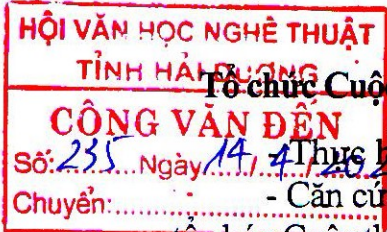 HỘI VĂN HỌC NGHỆ THUẬT
TỈNH HẢI DƯƠNG
Tổ chức Cuộ
CÔNG VĂN ĐẾN
Số: 235 Ngày 14/4/202
- Thực h
Chuyển:
- Căn cứ